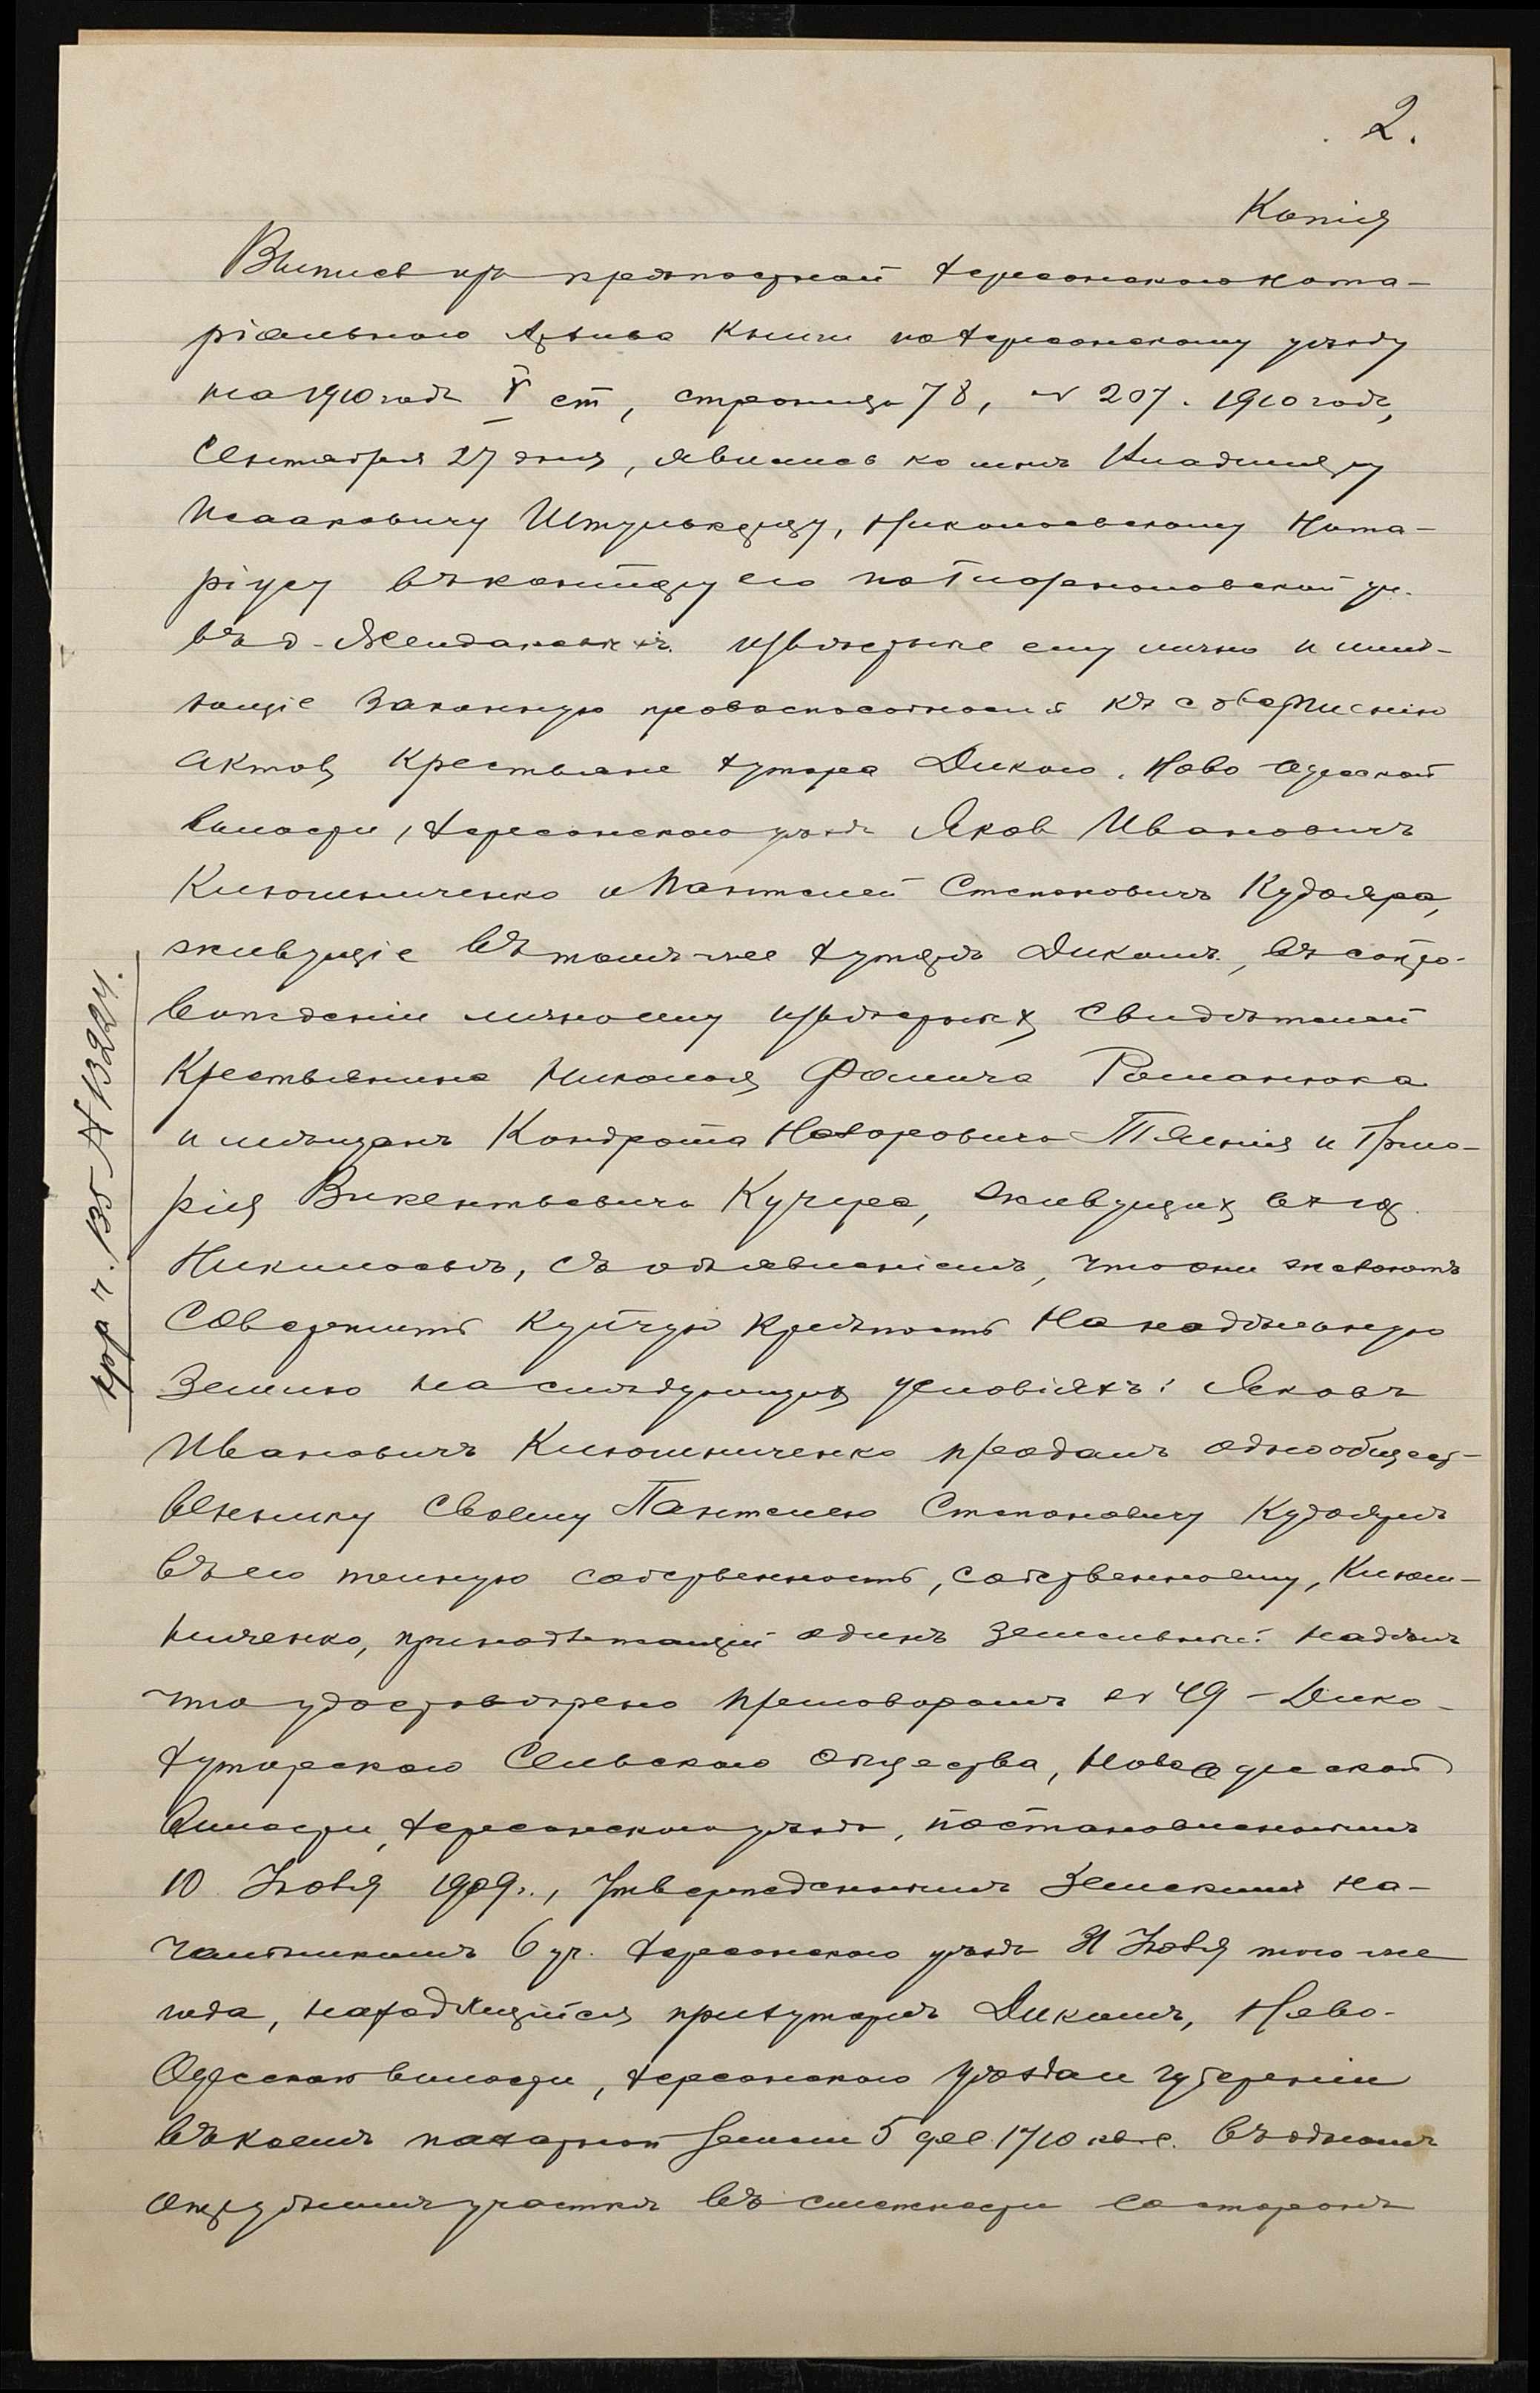 2.
Копія
Выпись изъ крѣпостной Херсонскаго Нота-
ріальнаго Архива Книги по Херсонскому уѣзду
на 1910 годъ V ст, страница 78, № 207. 1910 года,
Сентября 27 дня, явились ко мнѣ Владиміру
Исааковичу Штулькерцу, Николаевскому Нота-
ріусу въ контору его по Глазенаповской ул.
въ д. извѣстные ему лично и имѣ-
ющіе законную правоспособность къ совершенію
актовъ крестьяне хутора Дикого, Ново Одесской
волости, Херсонскаго уѣзда Яков Ивановичъ
Клюшниченко и Пантелей Степановичъ Кудояра,
живущіе въ томъ-же хуторѣ Дикомъ, въ сопро-
вожденіи лично ему извѣстныхъ свидѣтелей
Крестьянина Николая Фомича Романюка
и мѣщанъ Кондрата Назаровича и Григо-
рія Викентьевича Кучера, живущихъ въ гор.
Николаевѣ, съ объявленіемъ, что они желаютъ
совершить купчую крѣпость на надѣльную
землю на слѣдующихъ условіяхъ: Яковъ
Ивановичъ Клюшниченко продалъ однообщест-
веннику своему Пантелею Степановичу Кудоярѣ
въ его полную собственность, собственно ему, Клюш-
ниченко, принадлежащій одинъ земельный надѣлъ
что удостовѣрено приговоромъ № 49 – Дико-
хуторскаго Сельскаго Общества, Новоодесской
волости, Херсонскаго уѣзда, постановленнымъ
10 1909 г., утвержденнымъ Земскимъ На-
чальникомъ 6 уч. Херсонскаго уѣзда 31 того-же
года, находящійся при хуторѣ Дикомъ, Ново-
Одесской волости, Херсонскаго уѣзда и губерніи
въ коемъ пахатной земли 5 дес. 1710 кв. с. въ одномъ
отрубномъ участкѣ въ смежности со сторонъ
кр. ч. 135 № 13224.